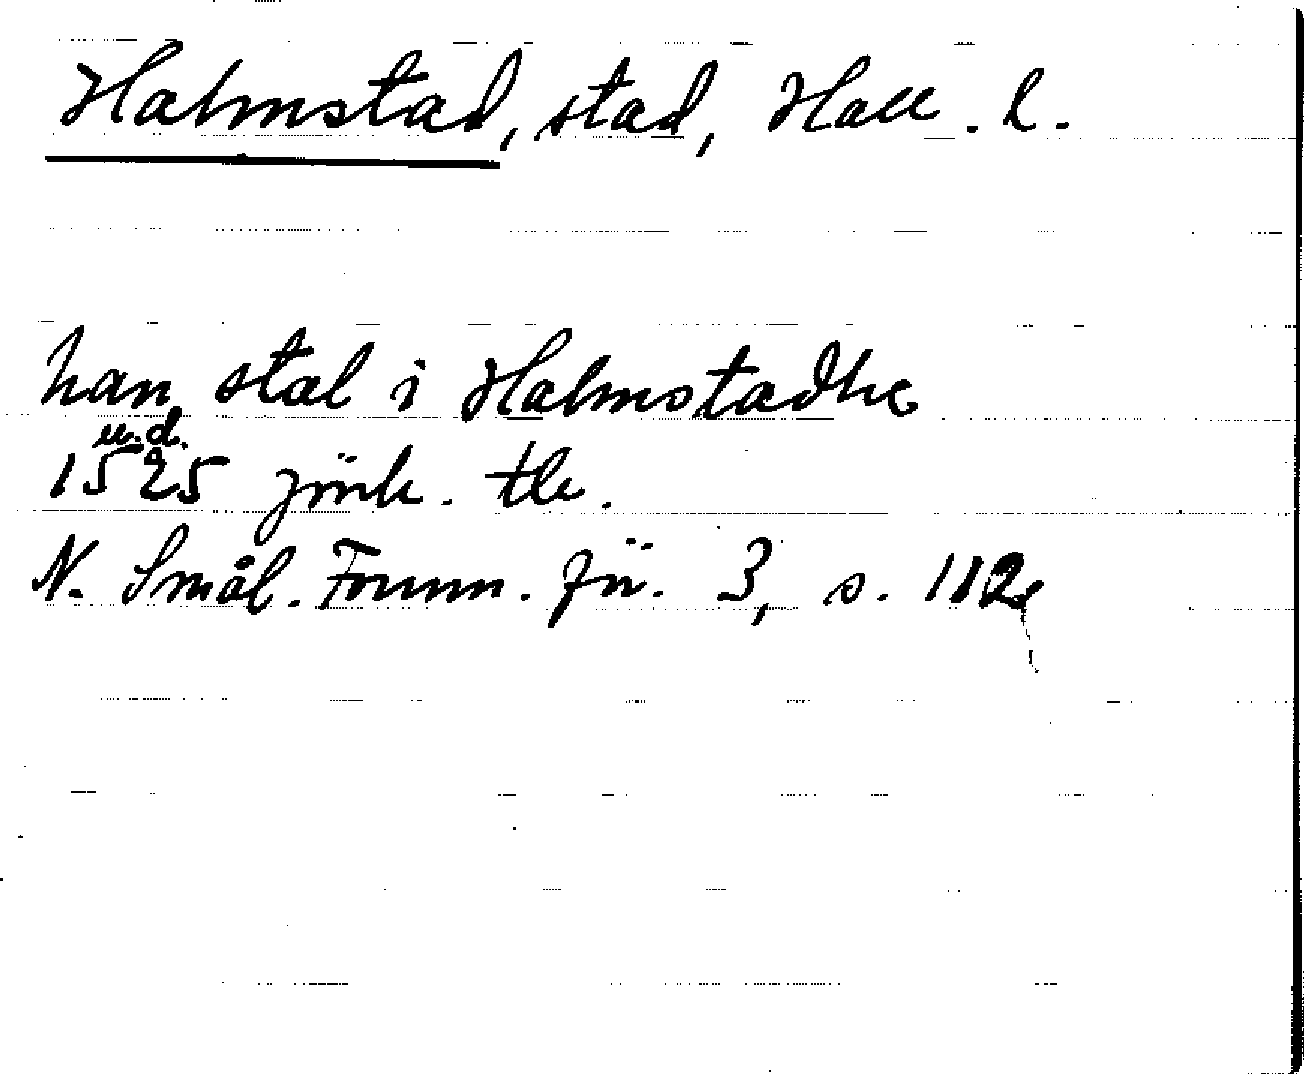 Halmstad, stad, Hall. l.
han stal i Halmstadhe
u.d.
1525 Jönk. tb.
N. Smål. Fornm. för. 3, s. 112